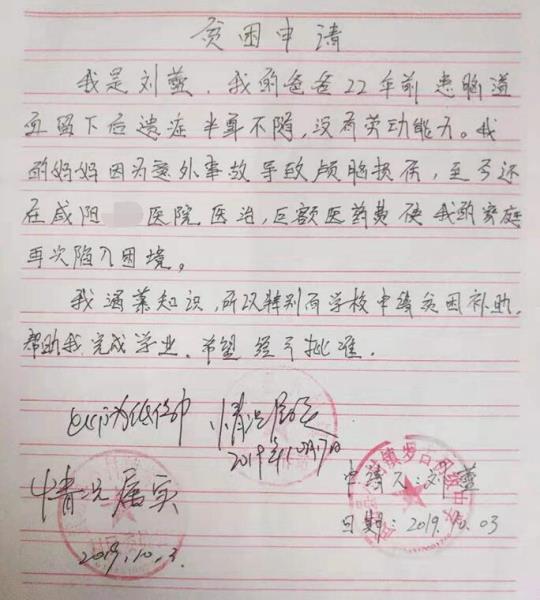 贫困申请
我是刘燕，我的爸爸22年前患脑溢
血留下后遗症半身不随，没有劳动能力。我
的妈妈因为意外事故导致颅脑损伤，至今还
在咸阳 医院医治，巨额医药费使我的家庭
再次陷入困境。
我渴葉知识，所以特别向学校申请贫困补助，
帮助我完成学业。希望给予批准。
情况属实
2019年10月17日
情况属实
2019.10.3.
申请人：刘燕
日期：2019.10.03